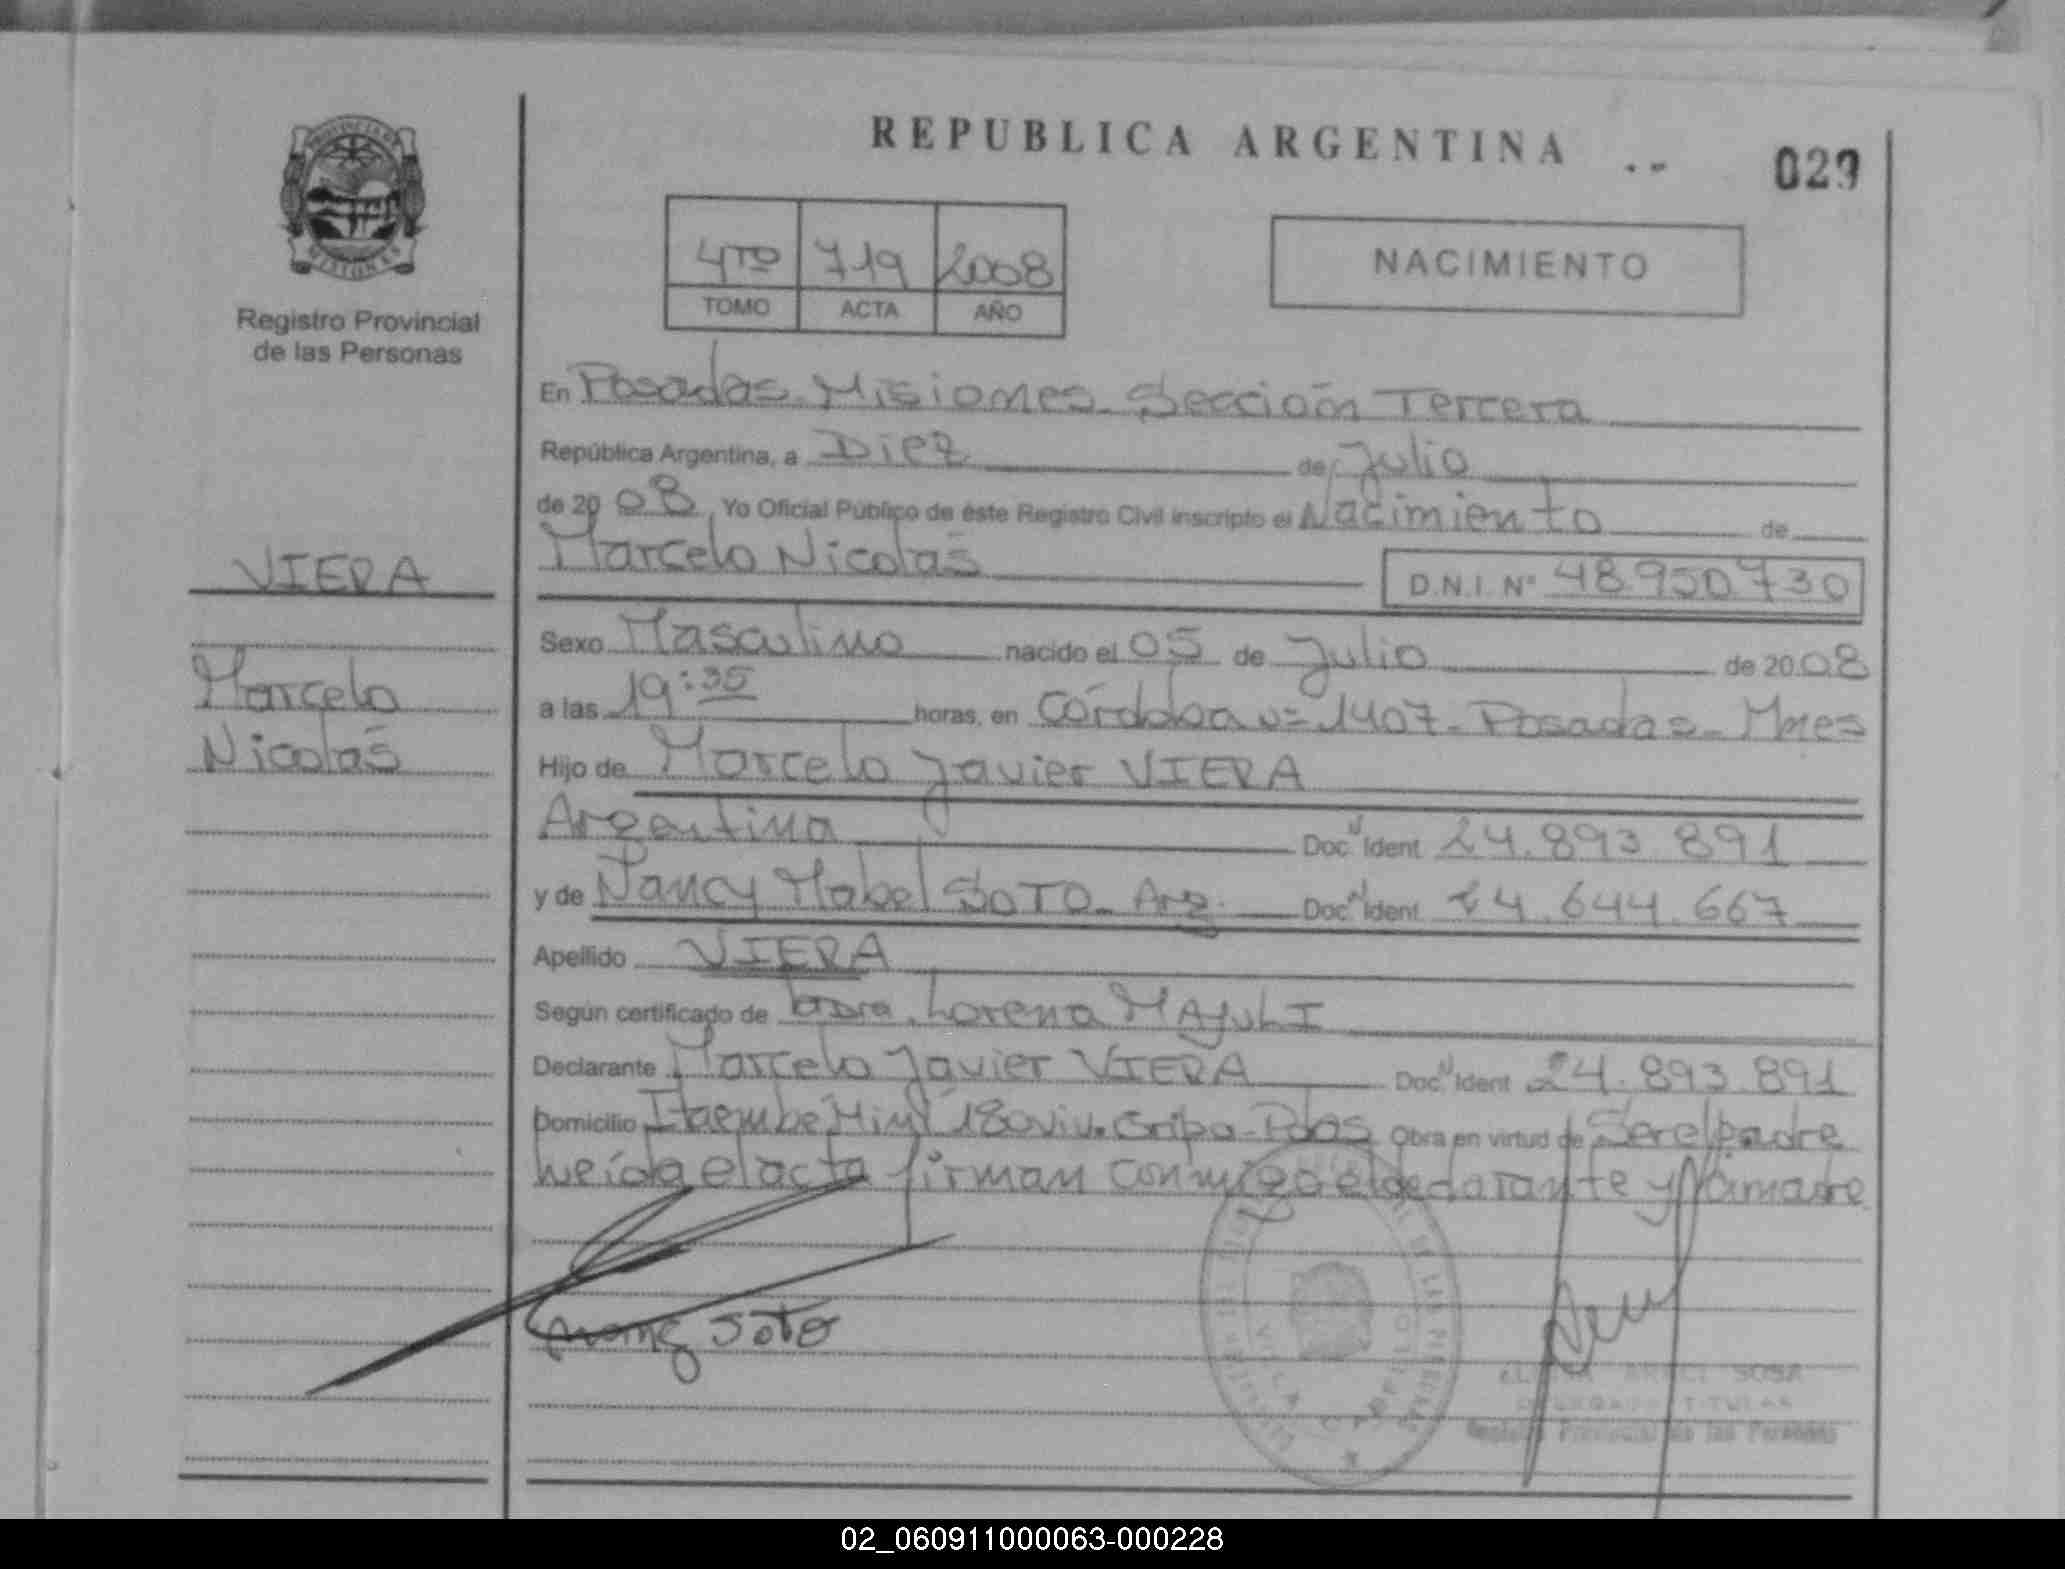 REPUBLICA ARGENTINA
029
PROVINCIA DE
MISIONES
Registro Provincial
de las Personas
4TO 719 2008
TOMO ACTA AÑO
NACIMIENTO
En Posadas Misiones Sección Tercera
República Argentina, a Diez de Julio
de 2008, Yo Oficial Público de éste Registro Civil inscripto el Nacimiento de
Marcelo Nicolás
D.N.I. Nº 48.950.730
VIERA
Marcelo
Nicolás
Sexo Masculino nacido el 05 de Julio de 2008
a las 19:35 horas, en Córdoba nº 1407 - Posadas - Mnes
Hijo de Marcelo Javier VIERA
Argentina Doc. Ident 24.893.891
y de Nancy Mabel SOTO - Arg. Doc. Ident 24.644.667
Apellido VIERA
Según certificado de Dra. Lorena MAJULI
Declarante Marcelo Javier VIERA Doc. Ident 24.893.891
Domicilio Itaembé Miní 180 viv. - Pdas Obra en virtud de Ser el padre
Leída el acta firman conmigo el declarante y la madre
Soto
VILLA CABELLO
SOSA
TITULAR
Registro Provincial de las Personas
02_060911000063-000228